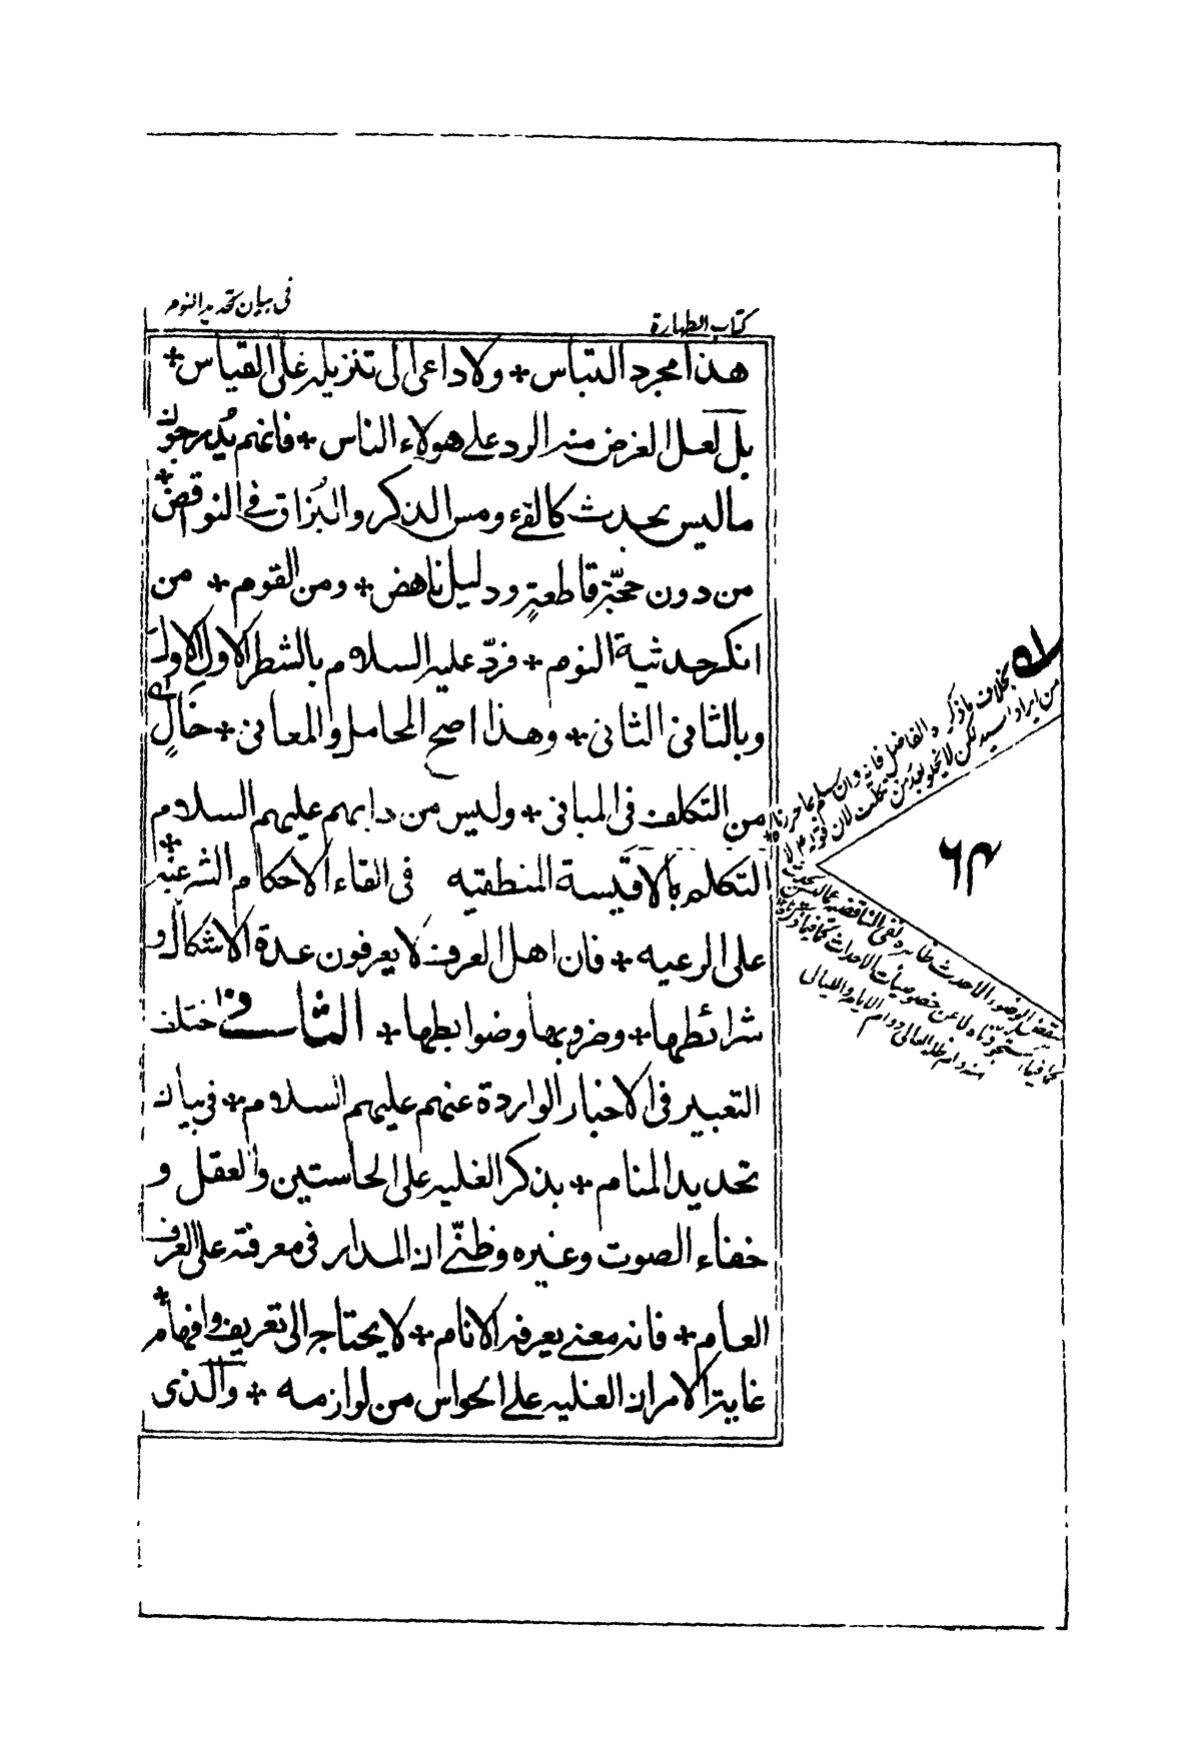 كتاب الطهارة
فى بيان تحديد النوم
هذا مجرد التباس + ولا داعى الى تنزيله على القياس +
بل لعل الغرض منه الرد على هولاء الناس + فانهم يدرجون
ما ليس بحدث كالقىء ومس الذكر والبُزاق فى النواقض +
من دون حجّة قاطعةٍ ودليل ناهض + ومن القوم + من
انكر حدثية النوم + فردّ عليه السلام بالشطر الاول الاول
وبالثانى الثانى + وهذا اصح المحامل والمعانى + خالٍ
من التكلف فى المبانى + وليس من دابهم عليهم السلام
التكلم بالاقيسة المنطقيه فى القاء الاحكام الشرعيّة +
على الرعيه + فان اهل العرف لا يعرفون عدة الاشكال و
شرائطها + وضروبها وضوابطها + الثانى قد اختلف
التعبير فى الاخبار الواردة عنهم عليهم السلام + فى بيان
تحديد المنام + بذكر الغلبه على الحاستين والعقل و
خفاء الصوت وغيره وظنّى ان المدار فى معرفته على العرف
العام + فانه معنى يعرفه الانام + لا يحتاج الى تعريف وافهام +
غاية الامر ان الغلبه على الحواس من لوازمه + والّذى
بخلاف ما ذكره الفاضل فانه وان سلم عما حررناه
من ايراد السيد لكن لا يخلو بعد من تكلف لان قوله ع لا
ينقض الوضوء الا حدث ظاهره نفى الناقضيه عما ليس بحدث
دام ظله العالى دوام الايام والليالى
٦٣